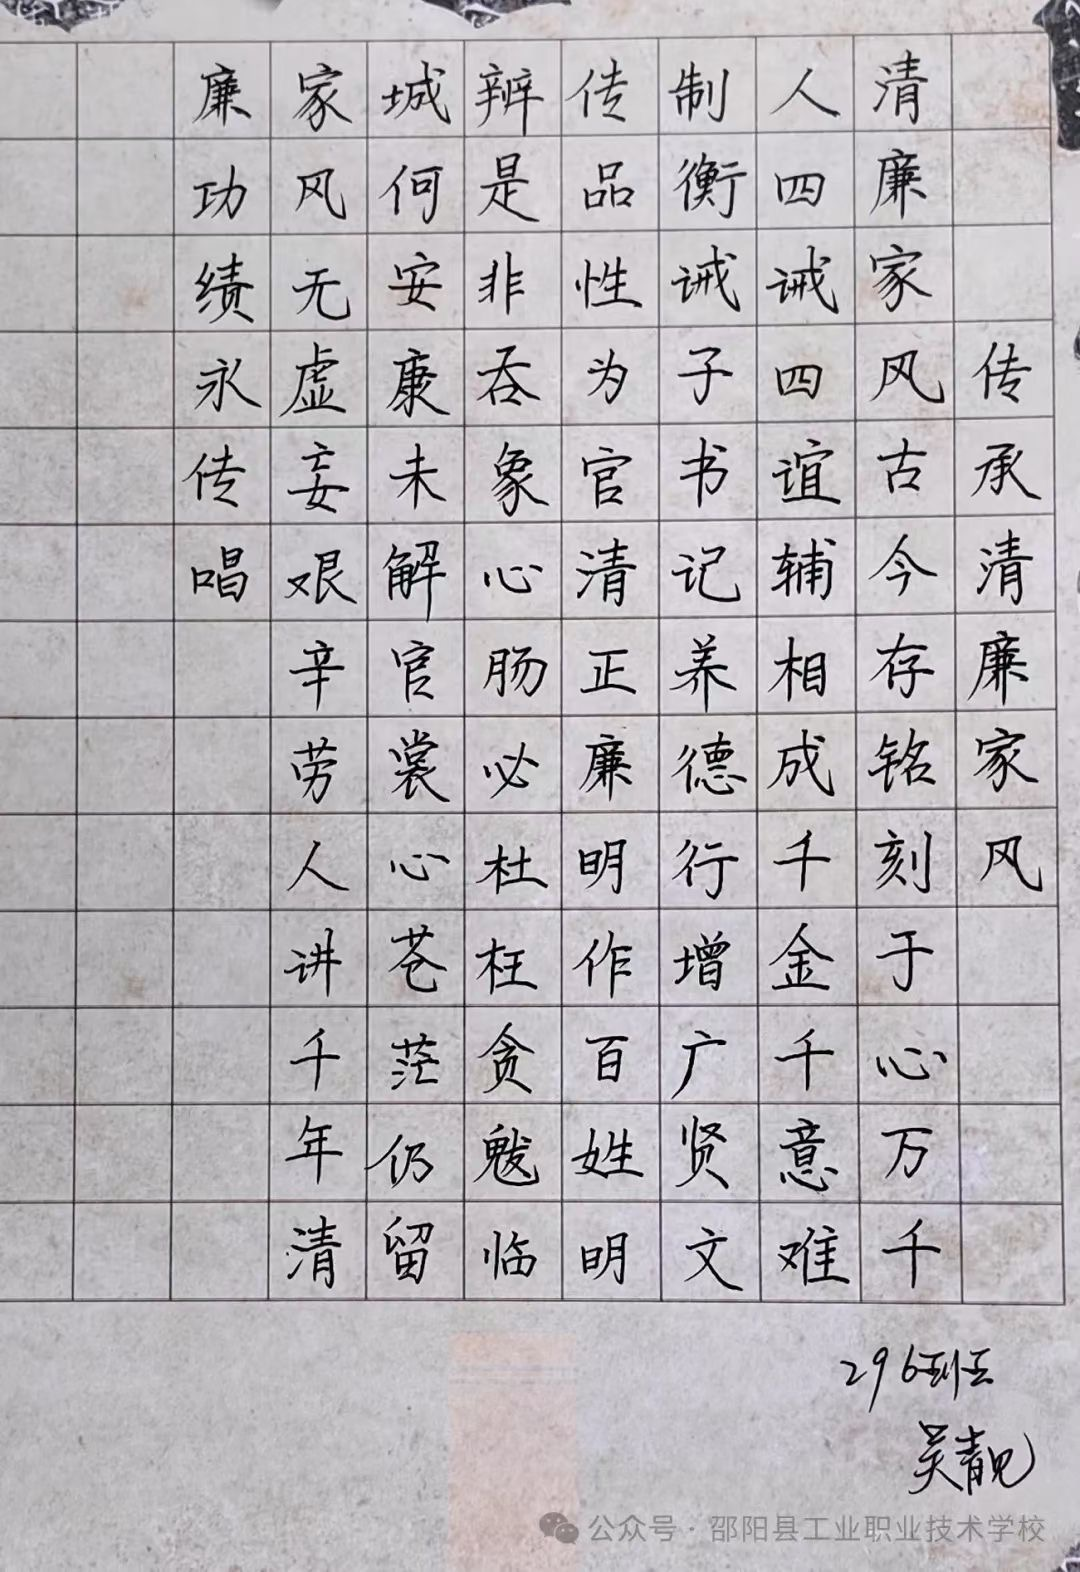 传承清廉家风
清廉家风古今存铭刻于心万千
人四诫四谊辅相成千金千意难
制衡诫子书记养德行增广贤文
传品性为官清正廉明作百姓明
辨是非吞象心肠必杜枉贪魃临
城何安康未解官裳心苍茫仍留
家风无虚妄艰辛劳人讲千年清
廉功绩永传唱
296班
吴靓
公众号·邵阳县工业职业技术学校